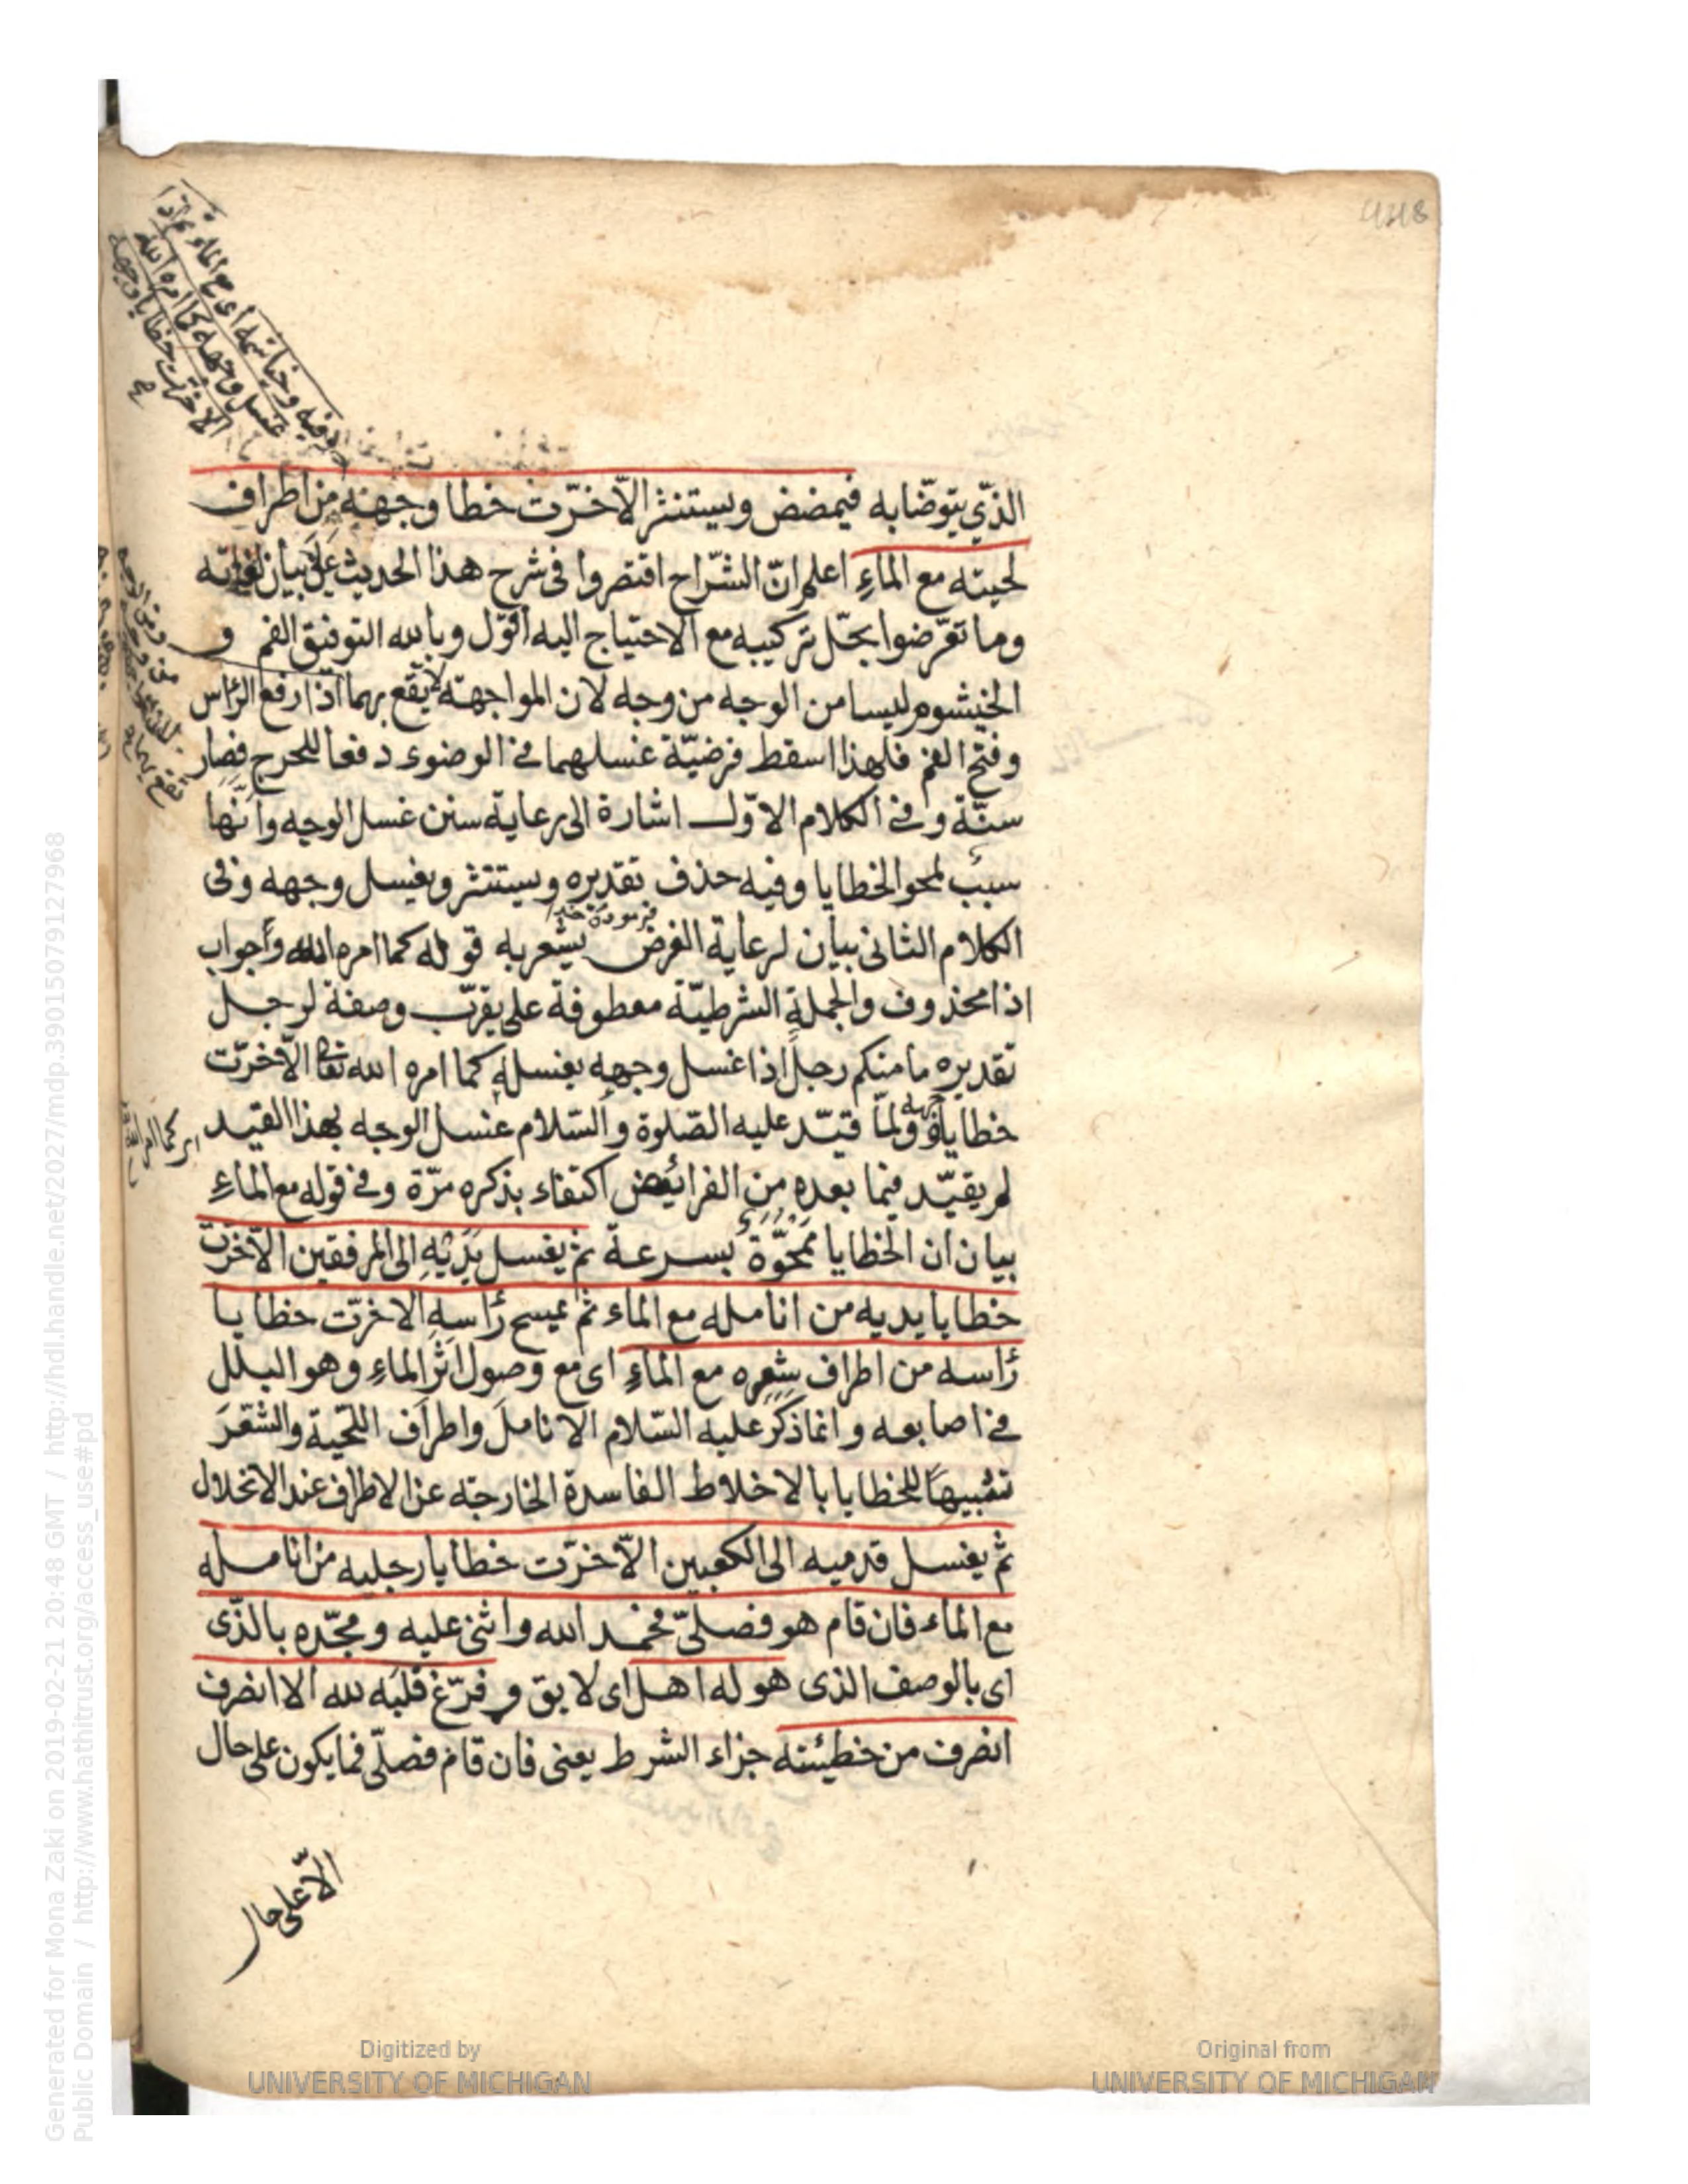 فيه وخياشيمه اى مع الماء ثم اذا
غسل وجهه كما امره الله
الا خرّت خطايا وجهه
صح
الذّي يتوضّابه فيمضض ويستنثر الاّ خرّت خطا وجهه من اطراف
لحيته مع الماءِ اعلم انّ الشرّاح اقتصروا فى شرح هذا الحديث على بيان
وما تعرّضوا بحلّ تركيبه مع الاحتياج اليه اقول وبالله التوفيق الفم و
الخيشوم ليسا من الوجه من وجه لان المواجهة لا يقع بهما اذا رفع الرأس
وفتح الفم فلهذا اسقط فرضيّة غسلهما فى الوضوء دفعا للحرج فصار
سنّة وفى الكلام الاوّل اشارة الى رعاية سنن غسل الوجه وانّها
سبب لمحو الخطايا وفيه حذف تقديره ويستنثر ويغسل وجهه وفى
الكلام الثانى بيان لرعاية الفرض يشعر به قوله كما امره الله وجواب
اذا محذوف والجملة الشرطيّة معطوفة على يقرّب وصفة لرجل
تقديره ما منكم رجل اذا غسل وجهه يغسله كما امره الله تعا الاّ خرّت
خطاياه ولمّا قيّد عليه الصّلوة والسّلام غسل الوجه بهذا القيد
اى كما امر الله
لم يقيّد فيما بعده من الفرائض اكتفاء بذكره مرّة وفى قوله مع الماءِ
بيان ان الخطايا ممحوّة بسرعة ثم يغسل يديه الى المرفقين الاّ خرّت
خطايا يديه من انامله مع الماء ثم يمسح رأسه الا خرّت خطايا
رأسه من اطراف شعره مع الماءِ اى مع وصول اثر الماءِ وهو البلل
فى اصابعه وانما ذكر عليه السّلام الانامل واطراف اللحية والشعر
تشبيهًا للخطايا بالاخلاط الفاسدة الخارجة عن الاطراف عند الانحلال
ثم يغسل قدميه الى الكعبين الاّ خرّت خطايا رجليه من انامله
مع الماء فان قام هو فصلىّ فحمد الله واثنى عليه ومجّده بالذّى
اى بالوصف الذى هو له اهل اى لايق وفرّغ قلبه لله الا انصرف
انصرف من خطيئته جزاء الشرط يعنى فان قام فصلّى فما يكون على حال
الاّ على حال